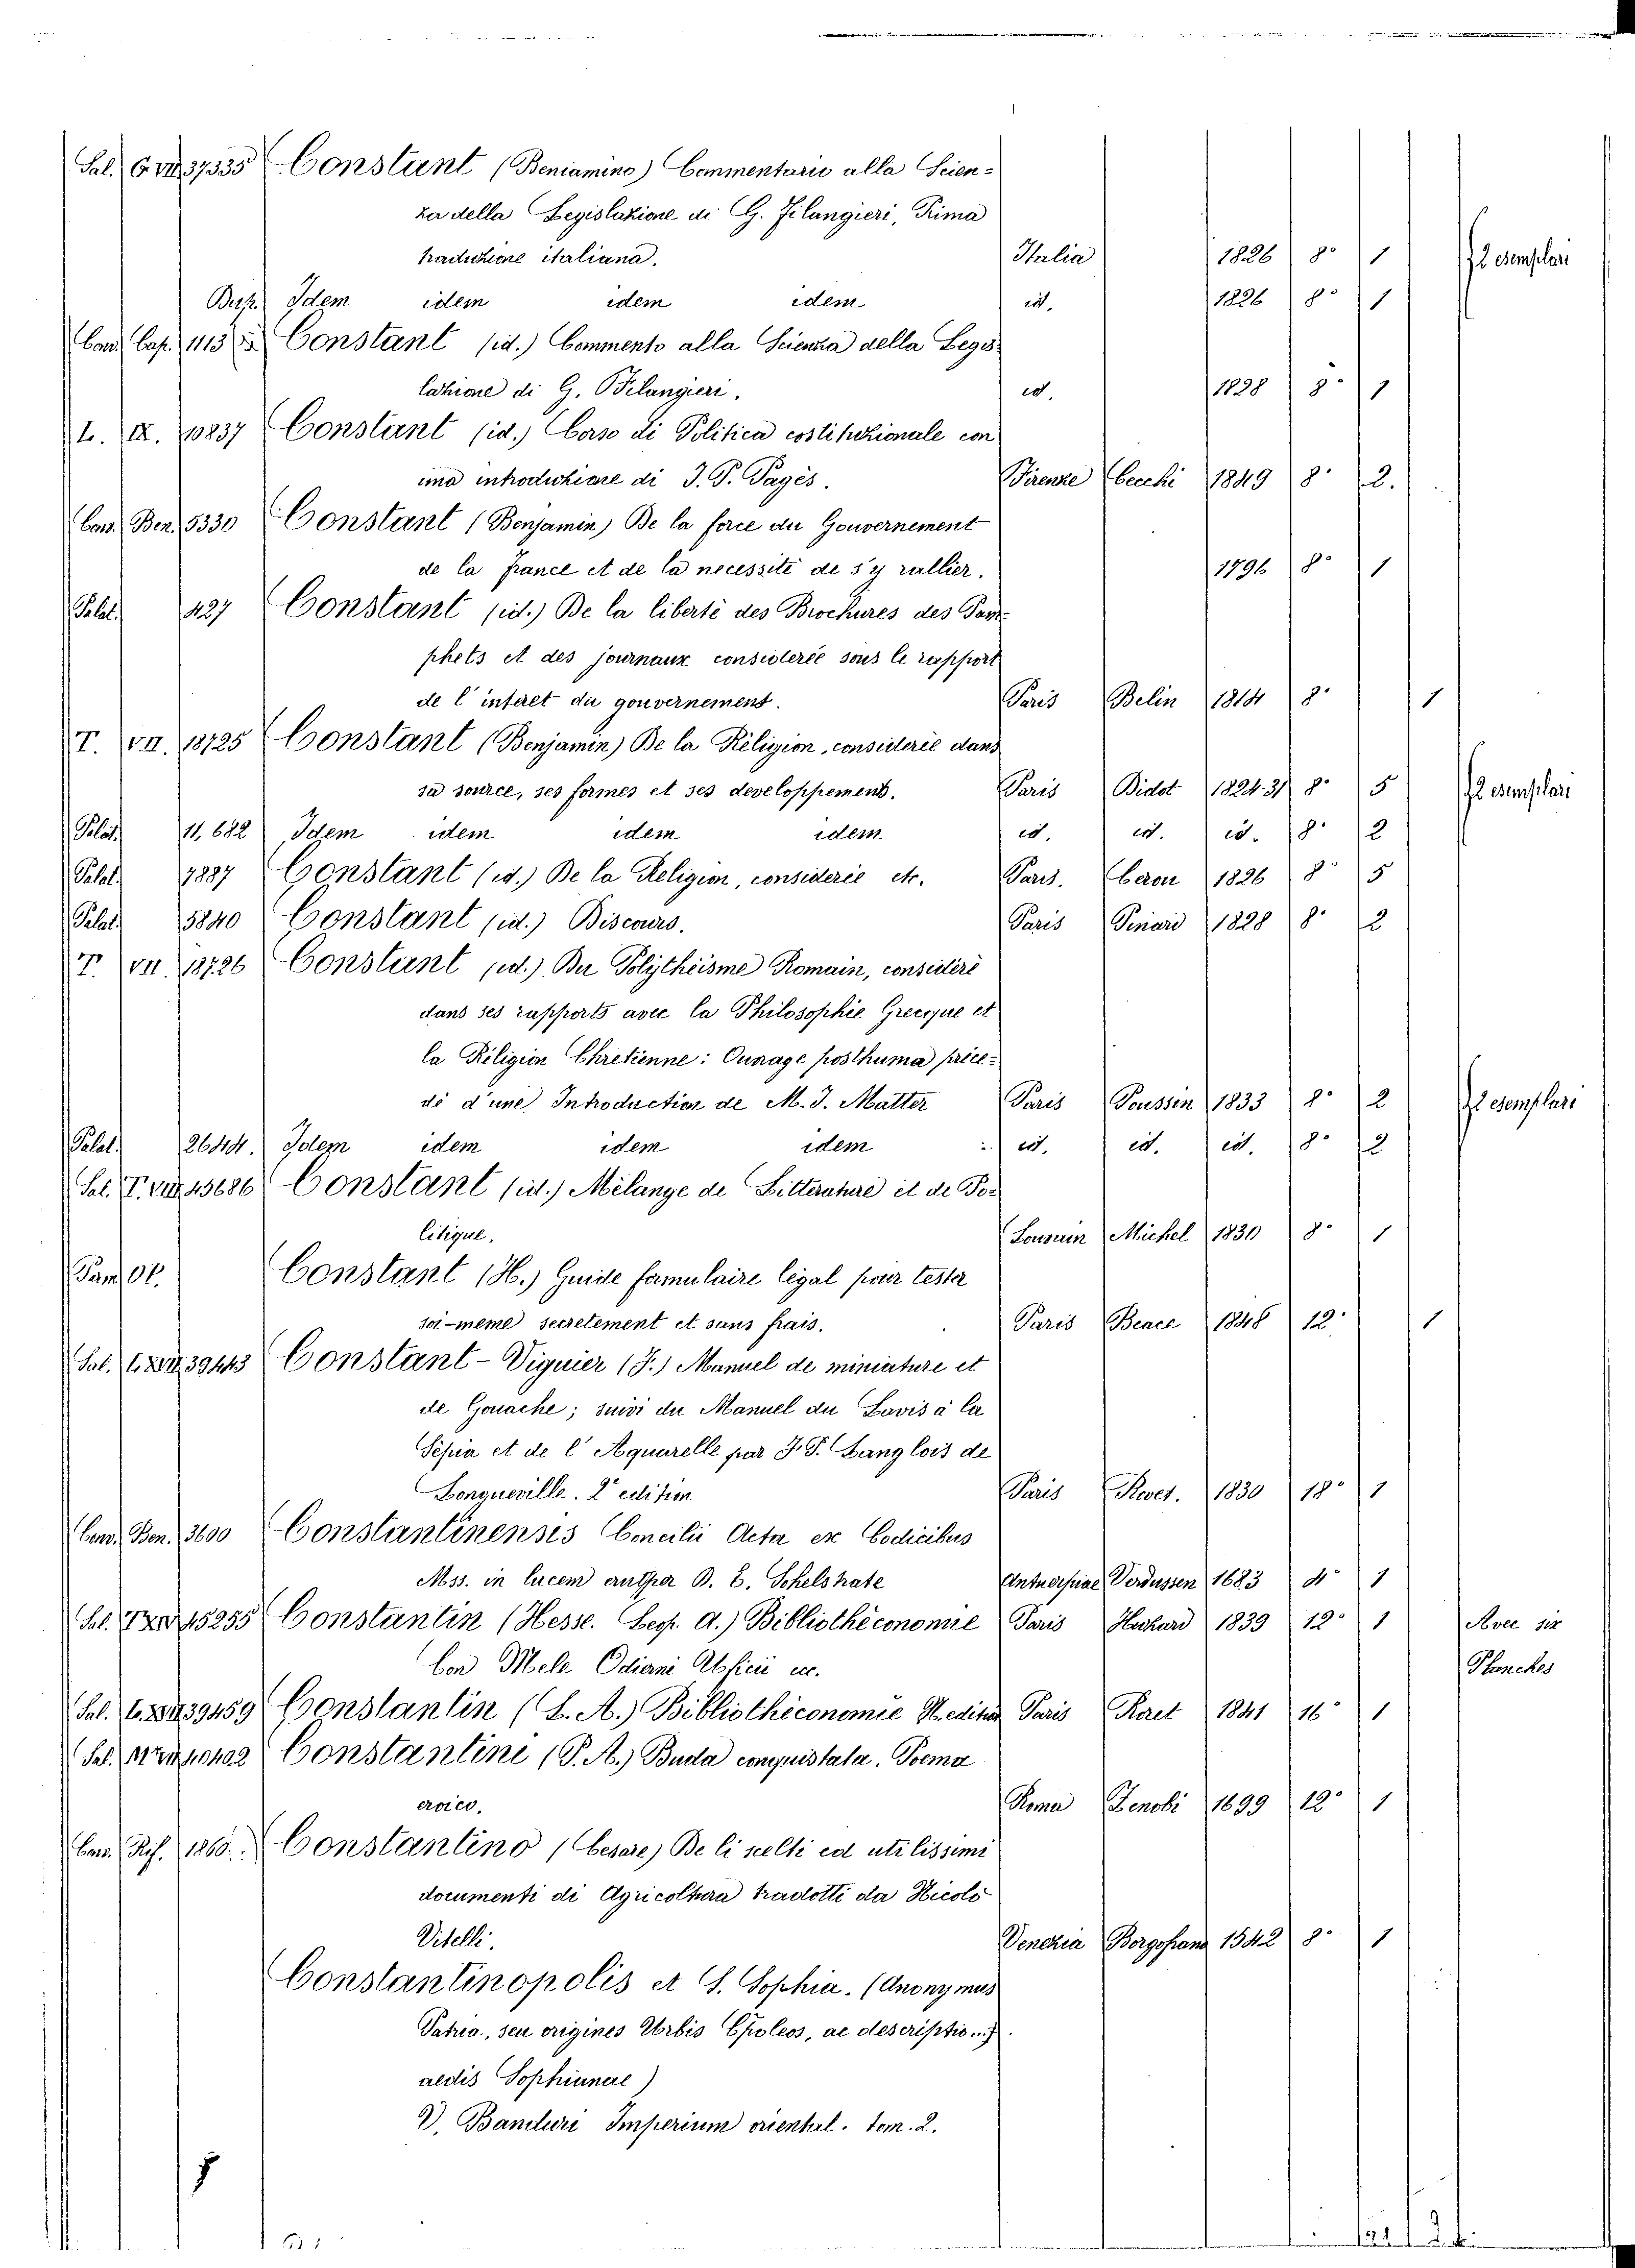 Sal. G. VII 37335 Constant (Beniamino) Commentario alla Scien=
za della Legislazione di G. Filangieri, Prima
traduzione italiana. Italia 1826 8° 1 2 esemplari
Idem idem idem idem id. 1826 8° 1
Cap. 1113 Constant (id.) Commento alla Scienza della Legis
lazione di G. Filangieri. id. 1828 8° 1
L. IX. 10837 Constant (id.) Corso di Politica costituzionale con
una introduzione di J. P. Pagès. Firenze Cecchi 1849 8° 2.
Ben. 5330 Constant (Benjamin) De la force du Gouvernement
de la france et de la necessité de s'y rallier. 1796 8° 1
Palat. 427 Constant (id.) De la liberté des Brochures des Pam=
phets et des journaux considerée sous le rapport
de l'interet du gouvernement. Paris Belin 1814 8° 1
T. VII. 18725 Constant (Benjamin) De la Religion, considerée dans
sa source, ses formes et ses developpement. Paris Didot 1824.31 8° 5 2 esemplari
Palat. 11,682 Idem idem idem idem id. id. id. 8° 2
Palat. 7887 Constant (id.) De la Religion, considerée etc. Paris. 1826 8° 5
Palat. 5840 Constant (id.) Discours. Paris Pinard 1828 8° 2
T. VII. 18726 Constant (id.) Du Polythéisme Romain, considéré
dans ses rapports avec la Philosophie Grecque et
la Religion Chretienne: Ouvrage posthuma préce=
dé d'une Introduction de M. J. Matter Paris Poussin 1833 8° 2 2 esemplari
Palat. 2644. Idem idem idem idem id. id. id. 8° 2
Sal. T. VII 45686 Constant (id.) Mélange de Litterature et de Po=
litique. Louvain Michel 1830 8° 1
Constant (H.) Guide formulaire légal pour tester
soi-meme secretement et sans frais. Paris Bence 1848 12° 1
Sal. 39443 Constant-Viguier (F.) Manuel de miniature et
de Gouache; suivi du Manuel du Lavis à la
Sépia et de l'Aquarelle par F. P. Langlois de
Longueville. 2e edition Paris Roret. 1830 18° 1
Ben. 3600 Constantinensis Concilii Acta ex Codicibus
Mss. in lucem eruta per D. E. Schelstrate Antuerpiae Verdussen 1683 4° 1
Sal. 45255 Constantin (Hesse. Leop. A.) Bibliothéconomie Paris 1839 12° 1 Avec six
Con Mele Odiani Abficii ec. Planches
Sal. 39459 Constantin (L. A.) Bibliothéconomie N. edition Paris Roret 1841 16° 1
Sal. 40402 Constantini (P. A.) Buda conquistata. Poema
eroico. Roma Zenobi 1699 12° 1
Rif. 1860. Constantino (Cesare) De li scelti ed utilissimi
documenti di Agricoltura tradotti da Nicolò
Vitelli. Venezia Borgofranc 1542 8° 1
Constantinopolis et S. Sophia. (Anonymus
Patria, seu origines Urbis Cpoleos, ac descriptio
aedis Sophianae)
V. Banduri Imperium oriental. tom. 2.